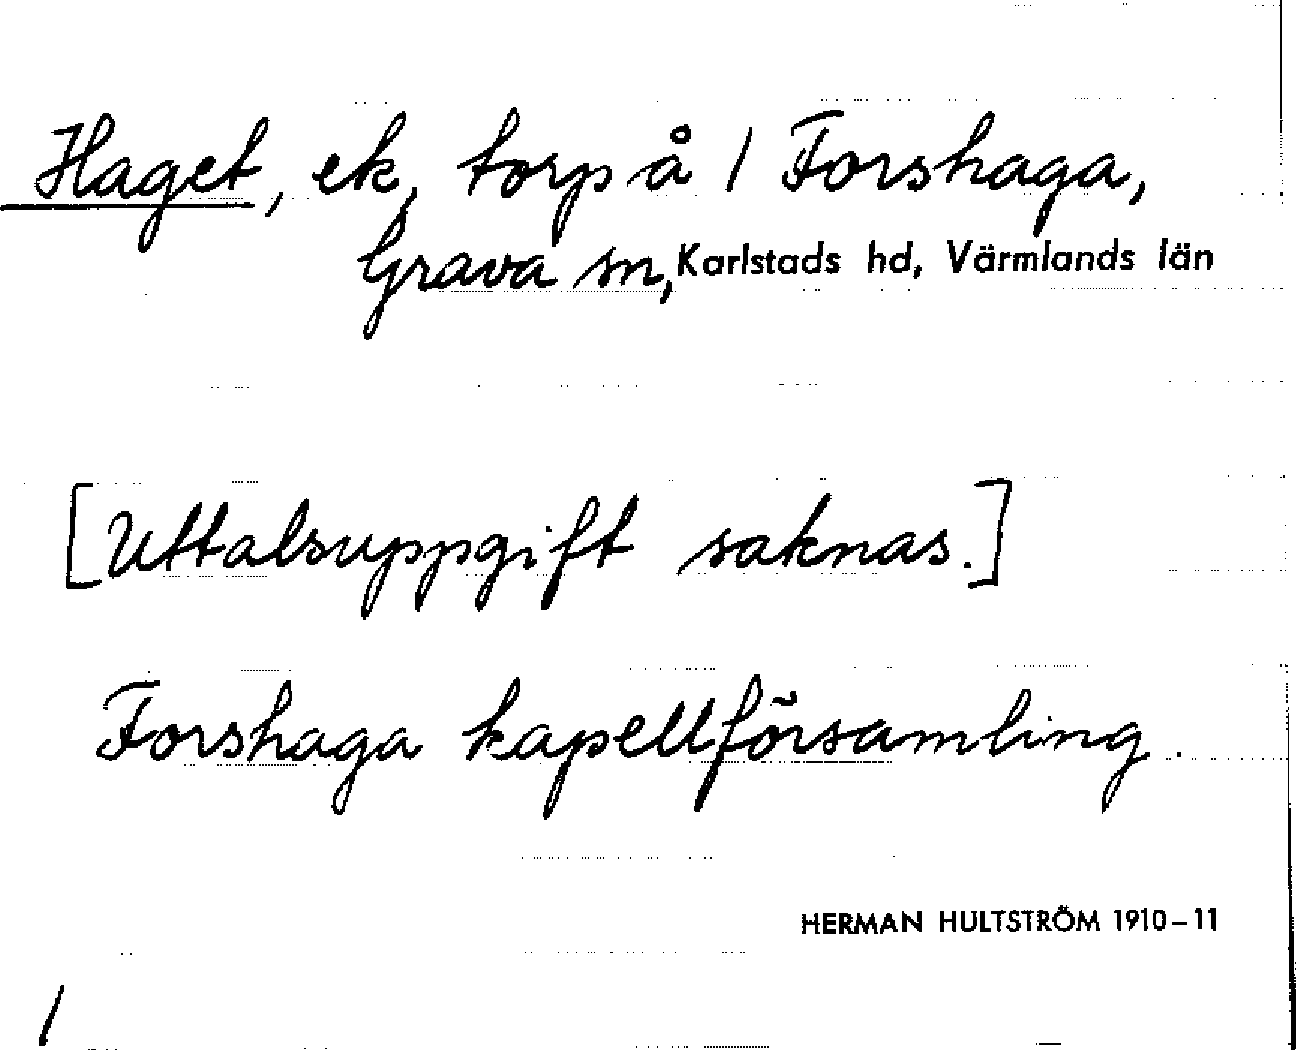 Haget, ek, torp å 1 Forshaga,
Grava sn, Karlstads hd, Värmlands län
[Uttalsuppgift saknas.]
Forshaga kapellförsamling.
HERMAN HULTSTRÖM 1910–11
/